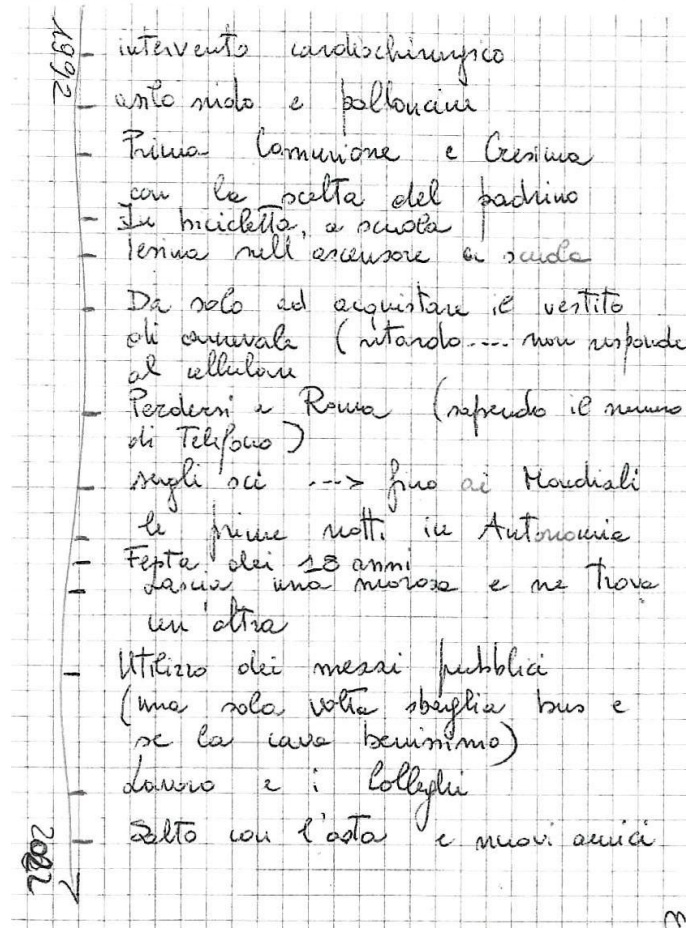 1992
intervento cardiochirurgico
asilo nido e palloncini
Prima Comunione e Cresima
con la scelta del padrino
In bicicletta, a scuola
lesina nell'ascensore a scuola
Da solo ad acquistare il vestito
di carnevale (ritardo.... non risponde
al cellulare
Perdersi a Roma (sapendo il numero
di Telefono)
sugli sci ---> fino ai Mondiali
le prime notti in Autonomia
Festa dei 18 anni
Lascia una morosa e ne trova
un'altra
Utilizzo dei mezzi pubblici
(una sola volta sbaglia bus e
se la cava benissimo)
Lavoro e i Colleghi
Salto con l'asta e nuovi amici
2022